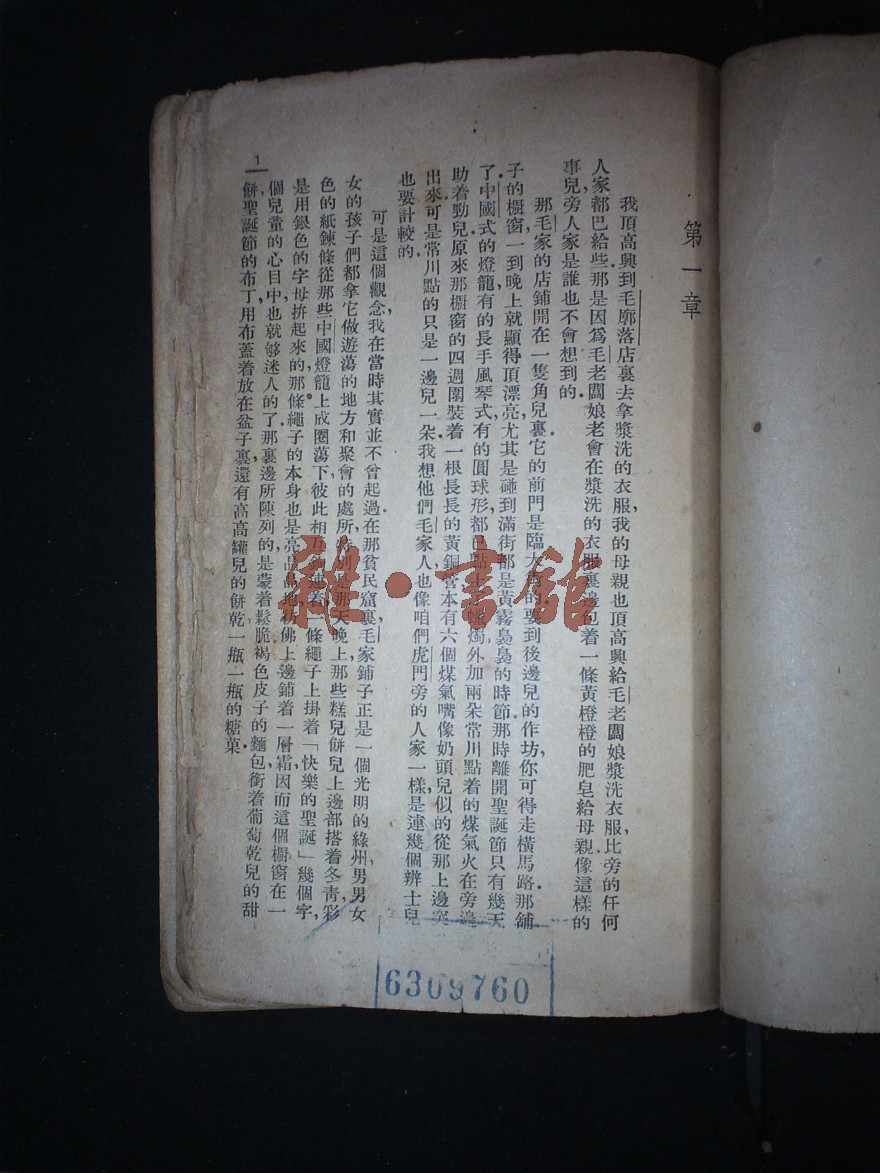 第一章
我頂高興到毛廓落店裏去拿漿洗的衣服,我的母親也頂高興給毛老闆娘漿洗衣服,比旁的任何
人家都巴給些.那是因爲毛老闆娘老會在漿洗的衣服裏邊包着一條黃橙橙的肥皂給母親.像這樣的
事兒,旁人家是誰也不會想到的.
那毛家的店鋪開在一隻角兒裏.它的前門是臨大街的;要到後邊兒的作坊,你可得走橫馬路.那舖
子的櫥窗,一到晚上就顯得頂漂亮,尤其是碰到滿街都是黃霧裊裊的時節.那時離開聖誕節只有幾天
了.中國式的燈籠,有的長手風琴式,有的圓球形,都已點上蠟燭,外加兩朵常川點着的煤氣火在旁邊
助着勁兒.原來那櫥窗的四週圍裝着一根長長的黃銅管,本有六個煤氣嘴像奶頭兒似的從那上邊突
出來,可是常川點的只是一邊兒一朵.我想他們毛家人也像咱們虎門旁的人家一樣,是連幾個辨士兒
也要計較的.
可是這個觀念,我在當時其實並不曾起過.在那貧民窟裏,毛家鋪子正是一個光明的綠州,男男女
女的孩子們都拿它做遊蕩的地方和聚會的處所.特別是那天晚上,那些糕兒餅兒上邊部搭着冬青,彩
色的紙鍊條從那些中國燈籠上成圈蕩下,彼此相互鈎連着.一條繩子上掛着「快樂的聖誕」幾個字,
是用銀色的字母拚起來的,那條繩子的本身也是亮晶晶地彷佛上邊鋪着一層霜,因而這個櫥窗在一
個兒童的心目中也就够迷人的了.那裏邊所陳列的是蒙着鬆脆褐色皮子的麵包,銜着葡萄乾兒的甜
餅,聖誕節的布丁,用布蓋着放在盆子裏,還有高高罐兒的餅乾,一瓶一瓶的糖菓.
1
6309760
雜·書館